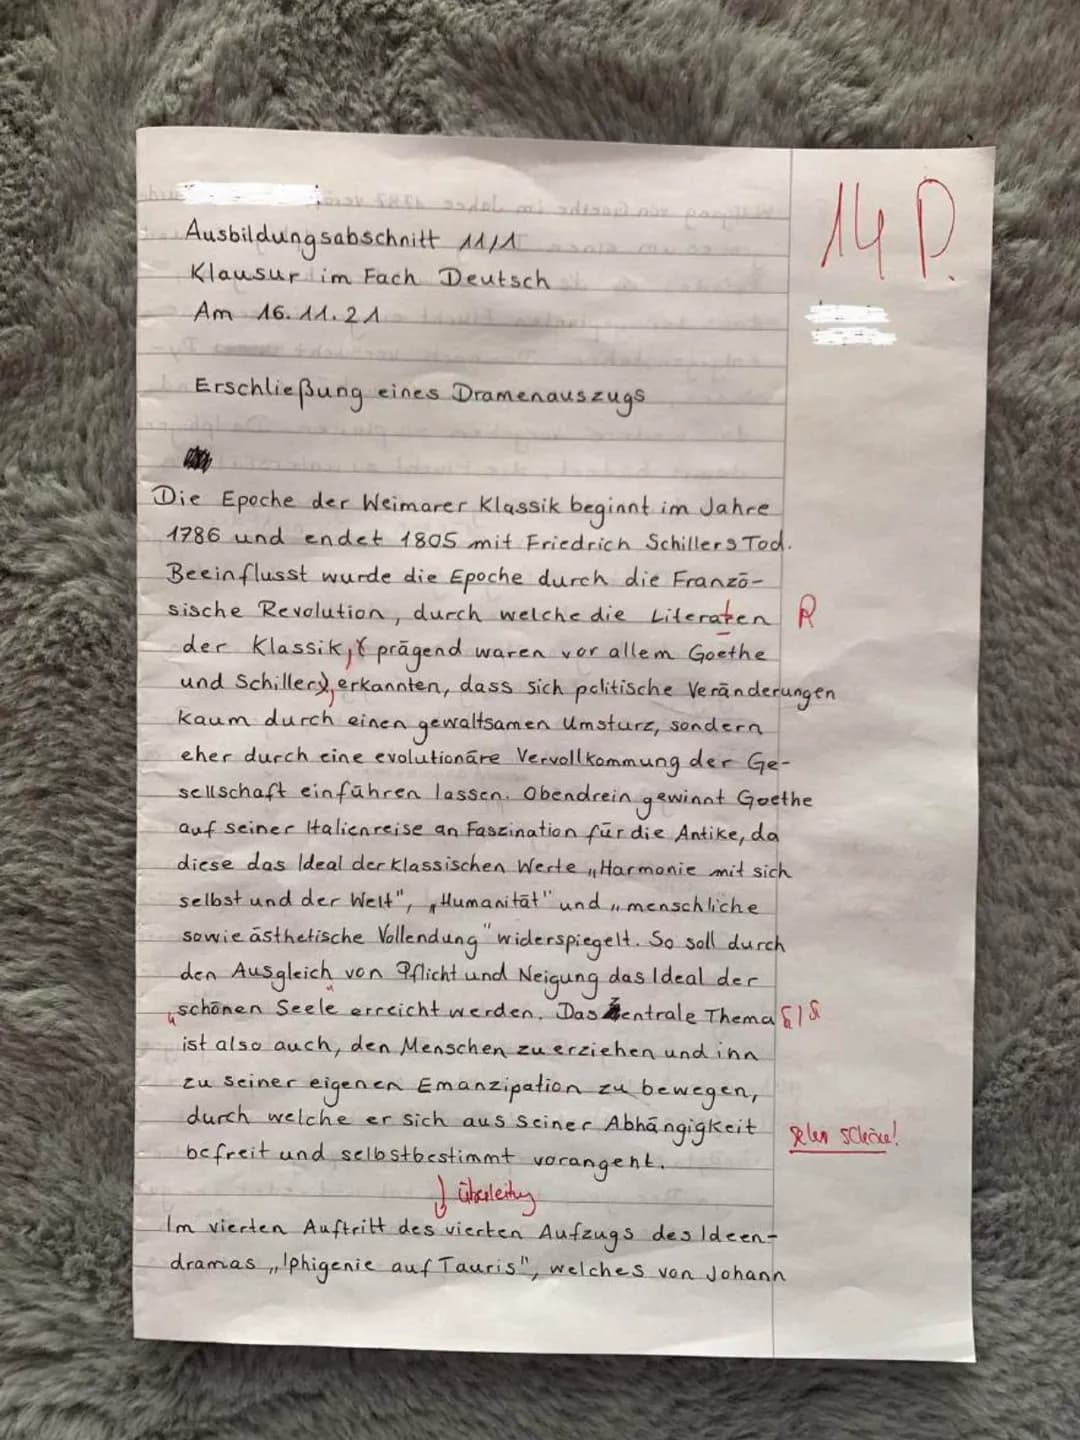 14 P.
Ausbildungsabschnitt 11/1
Klausur im Fach Deutsch
Am 16.11.21
Erschließung eines Dramenauszugs
Die Epoche der Weimarer Klassik beginnt im Jahre
1786 und endet 1805 mit Friedrich Schillers Tod.
Beeinflusst wurde die Epoche durch die Franzö-
sische Revolution, durch welche die Literaten R
der Klassik, ( prägend waren vor allem Goethe
und Schiller), erkannten, dass sich politische Veränderungen
kaum durch einen gewaltsamen Umsturz, sondern
eher durch eine evolutionäre Vervollkommung der Ge-
sellschaft einführen lassen. Obendrein gewinnt Goethe
auf seiner Italienreise an Faszination für die Antike, da
diese das Ideal der klassischen Werte „Harmonie mit sich
selbst und der Welt", „Humanität" und „menschliche
sowie ästhetische Vollendung" widerspiegelt. So soll durch
den Ausgleich von Pflicht und Neigung das Ideal der
„schönen Seele" erreicht werden. Das zentrale Thema
ist also auch, den Menschen zu erziehen und inn
zu seiner eigenen Emanzipation zu bewegen,
durch welche er sich aus seiner Abhängigkeit
sehr schön!
befreit und selbstbestimmt vorangeht.
↓ Überleitung
Im vierten Auftritt des vierten Aufzugs des Ideen-
dramas „Iphigenie auf Tauris", welches von Johann